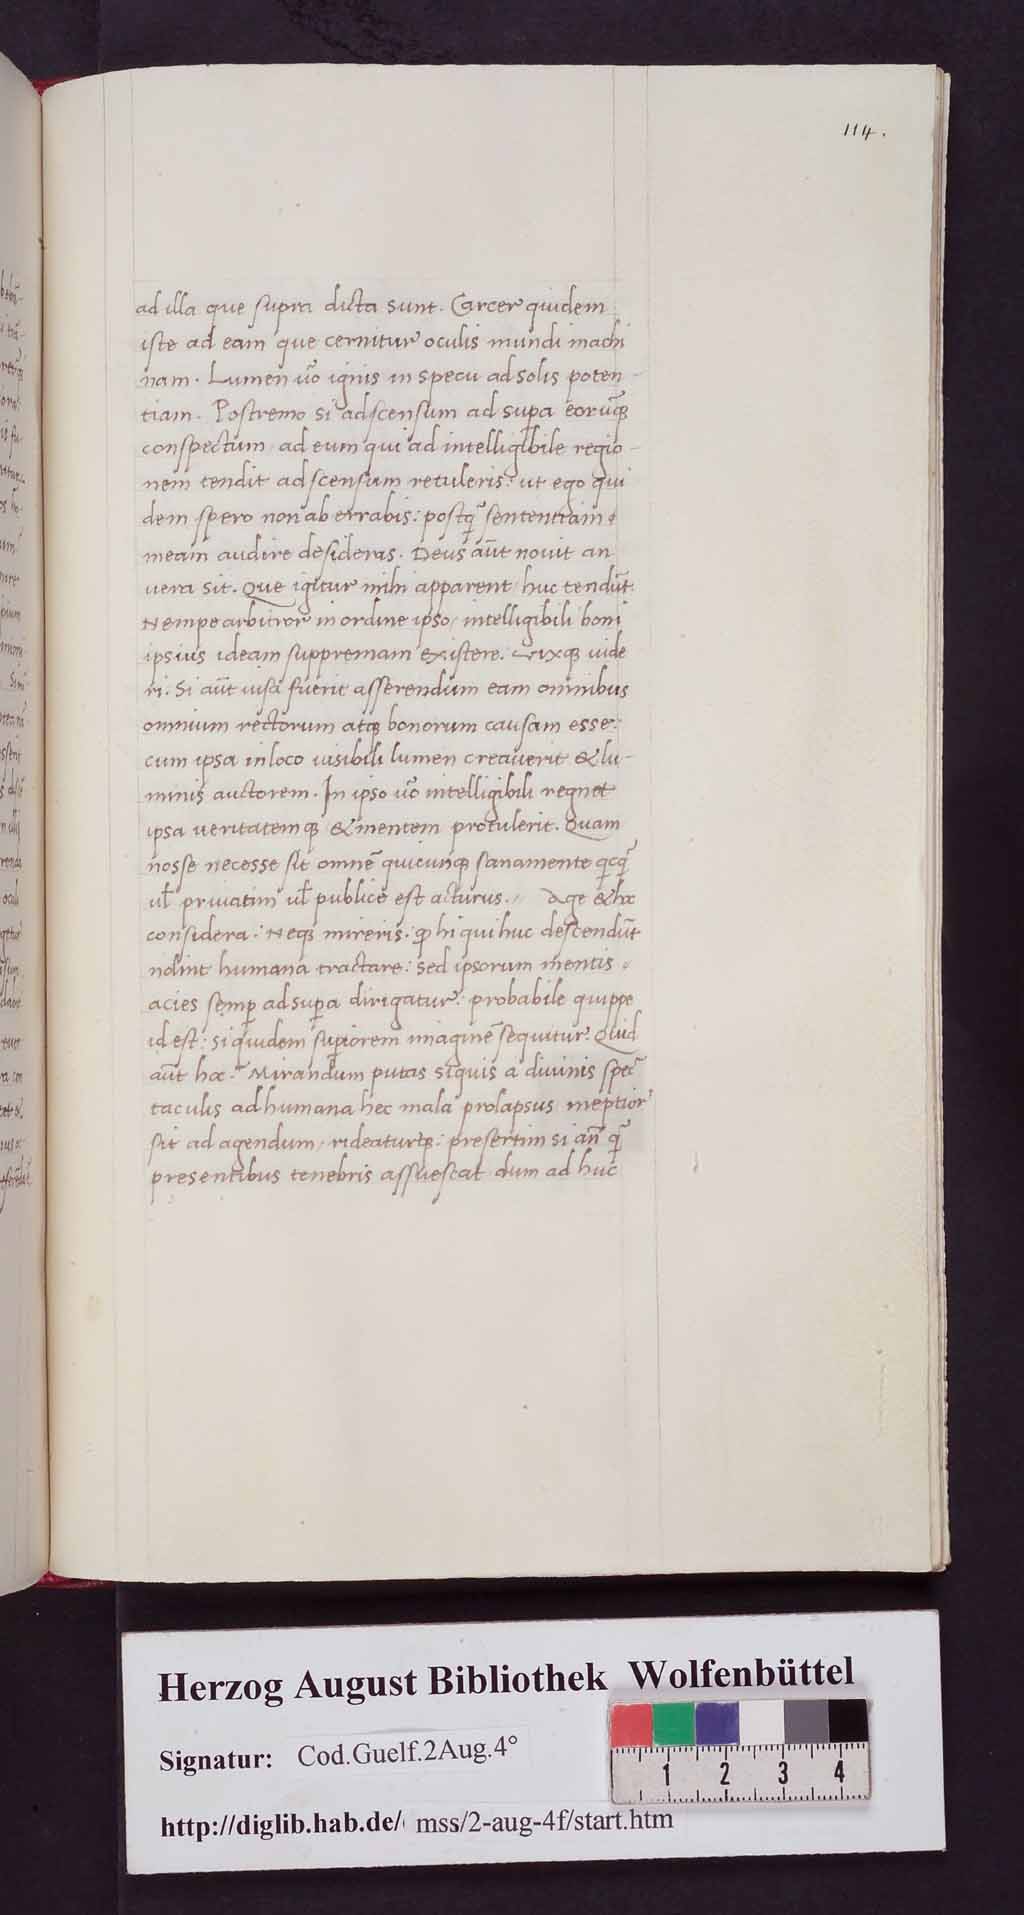 114.
ad illa que supra dicta sunt. Carcer quidem
iste ad eam que cernitur oculis mundi machi
nam. Lumen uo͂ ignis in specu ad solis poten-
tiam. Postremo si adscensum ad supa eorūq;
conspectum ad eum qui ad intelligibile regio-
nem tendit adscensum retuleris: ut ego qui
dem spero non ab errabis: postq̃ sententiam
meam audire desideras. Deus aūt nouit an
uera sit. Que igitur mihi apparent huc tendūt.
Nempe arbitror in ordine ipso intelligibili boni
ipsius ideam suppremam existere. Vixq; uide
ri. Si aūt uisa fuerit asserendum eam omnibus
omnium rectorum atq; bonorum causam esse:
cum ipsa in loco uisibili lumen creauerit & lu-
minis auctorem. In ipso uo͂ intelligibili regnet
ipsa ueritatemq; & mentem protulerit. Quam
nosse necesse sit omnē quicunq; sanamente qcq̃
ul̃ priuatim ul̃ publice est acturus. Age & hoc
considera: Neq; mireris: ꝙ hi qui huc descendūt
nolint humana tractare: sed ipsorum mentis
acies semp ad supa dirigatur: probabile quippe
id est: si quidem supiorem imaginē sequitur. Quid
aūt hoc? Mirandum putas siquis a diuinis spec
taculis ad humana hec mala prolapsus ineptior
sit ad agendum, rideaturq;: presertim si an̄ q̃
presentibus tenebris assuescat dum ad huc
Herzog August Bibliothek Wolfenbüttel
Signatur: Cod.Guelf.2Aug.4°
1 2 3 4
http://diglib.hab.de/ mss/2-aug-4f/start.htm